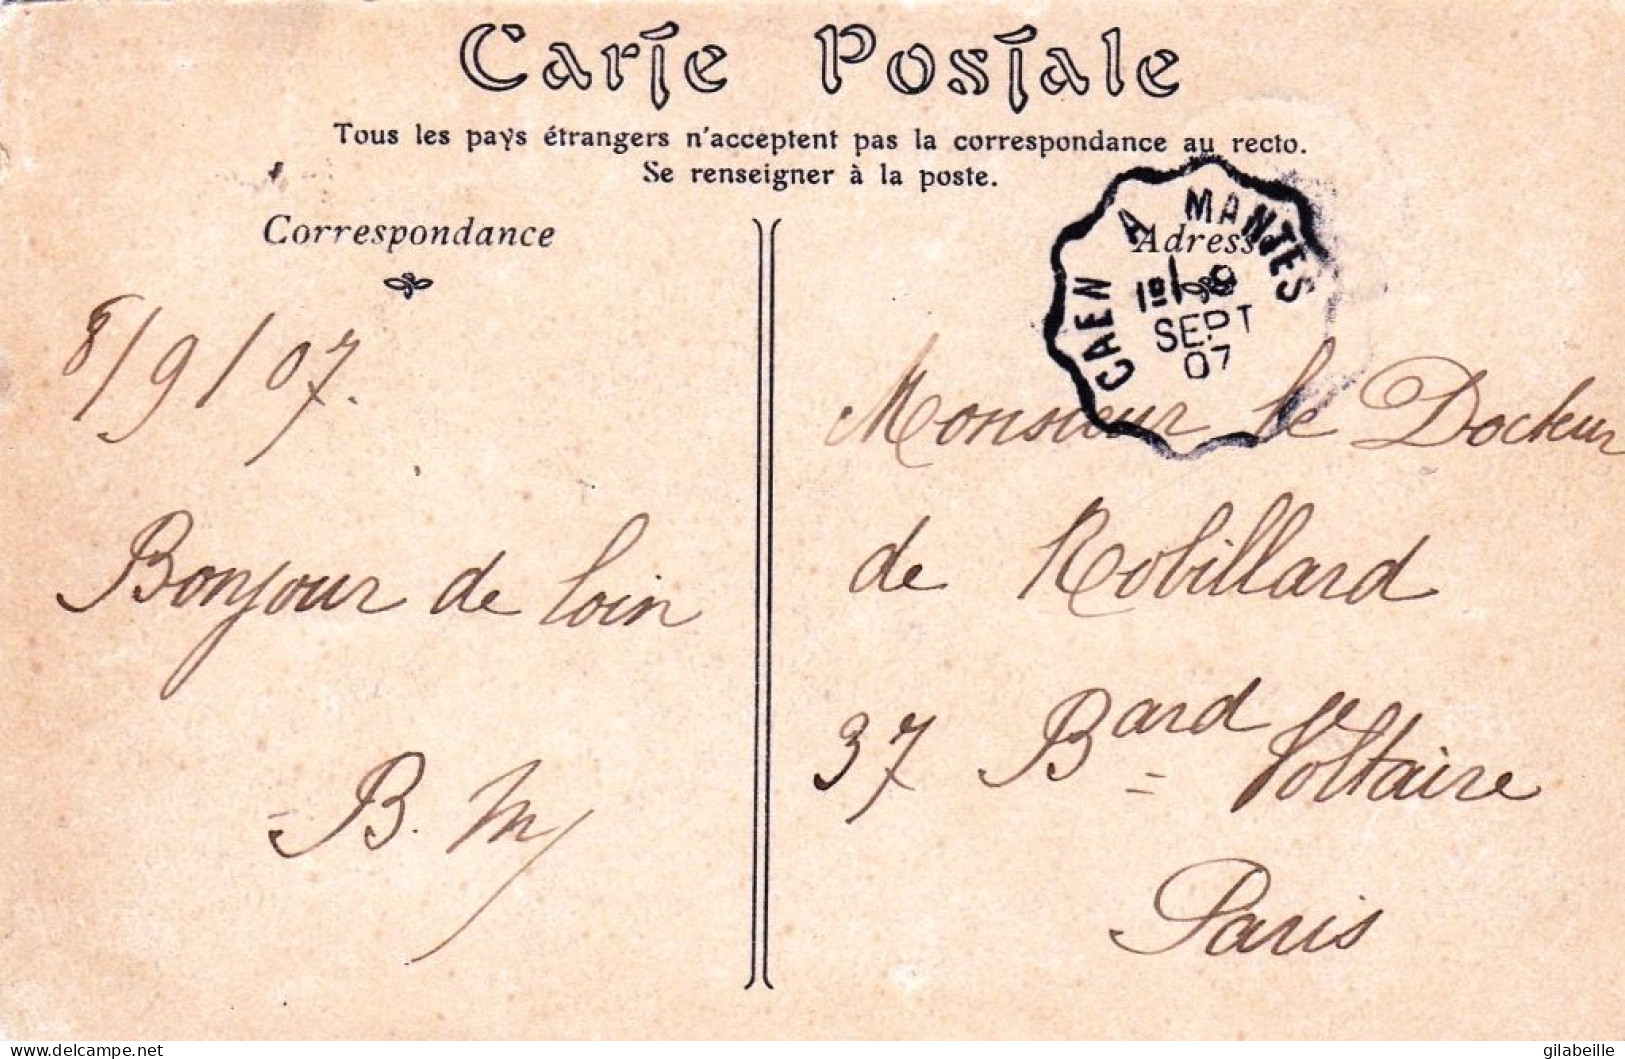 Carte Postale
Tous les pays étrangers n'acceptent pas la correspondance au recto.
Se renseigner à la poste.
Correspondance
Adresse
CAEN A MANTES
SEPT
07
8/9/07.
Bonjour de loin
B. M
Monsieur le Docteur
de Robillard
37 Bard Voltaire
Paris
delcampe.net
gilabeille